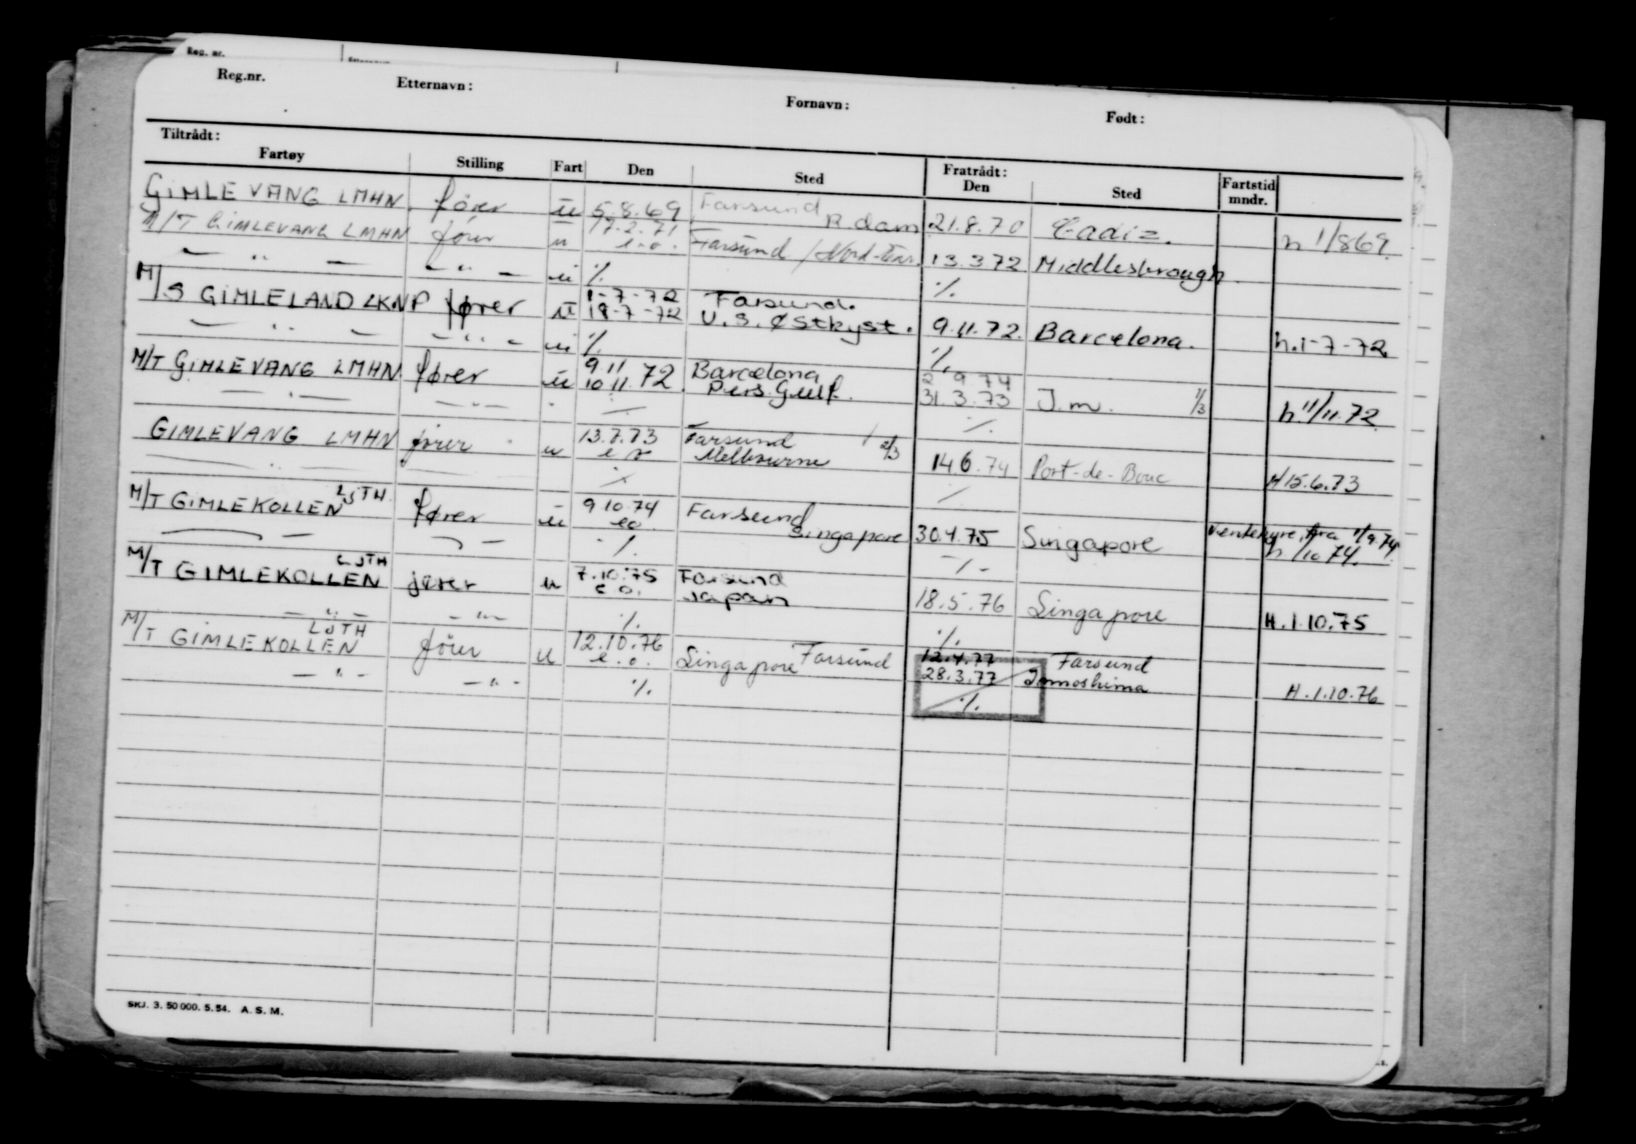 Reg. nr.
Reg.nr. Etternavn: Fornavn: Født:
Tiltrådt: Fratrådt:
Fartøy Stilling Fart Den Sted Den Sted Fartstid mndr.
GIMLEVANG LMHN fører u 5.8.69 Farsund R.dam 21.8.70 Cadiz. h 1/869
M/T GIMLEVANG LMHN fører u 17.2.71 e.o. Farsund / 13.3.72 Middlesbrough
— " — — " — u % %
M/S GIMLELAND LKNP fører u 1-7-72 Farsund.
18-7-72 U.S. Østkyst. 9.11.72. Barcelona. h.1-7-72
— " — — " — u % %
M/T GIMLEVANG LMHN fører u 9 11 72 Barcelona 2 9 74
10 11 Pers. Gulf. 31.3.73 J.m. 1/3 h 11/11.72
— " — — " — % %
GIMLEVANG LMHN fører u 13.7.73 Farsund 2/3
e o Melbourne 14 6.74 Port-de-Bouc H 15.6.73
— " — % %
M/T GIMLEKOLLEN LJTH fører u 9 10.74 Farsund
eo Singapore 30.4.75 Singapore Ventehyre fra 1/9.74
h 1/10 74.
— " — — " — % %
M/T GIMLEKOLLEN LJTH fører u 7.10.75 Farsund
e o. Japan 18.5.76 Singapore H.1.10.75
— " — — " — % %
M/T GIMLEKOLLEN LJTH fører u 12.10.76 Farsund 12.4.77 Farsund
e.o. Singapore 28.3.77 H.1.10.76
— " — — " — % %
SKJ. 3. 50 000. 5. 54. A. S. M.